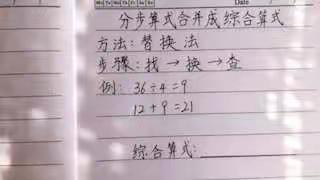 Mo Tu We Th Fr Sa Su
Date
分步算式合并成综合算式
方法：替换法
步骤：找→换→查
例：36÷4=9
12+9=21
综合算式：